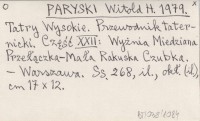 PARYSKI Witold H. 1979.
Tatry Wysokie. Przewodnik tater-
nicki. Część XXII: Wyżnia Miedziana
Przełączka-Mała Rakuska Czubka.
- Warszawa. Ss. 268, il., okł. (il),
cm 17 x 12.